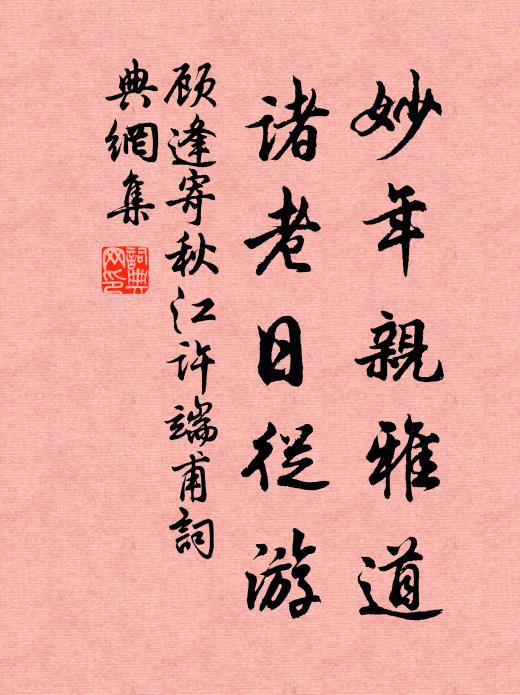 妙年親雅道
諸老日從游
顾逢寄秋江许端甫詞
典網集
詞典
网印